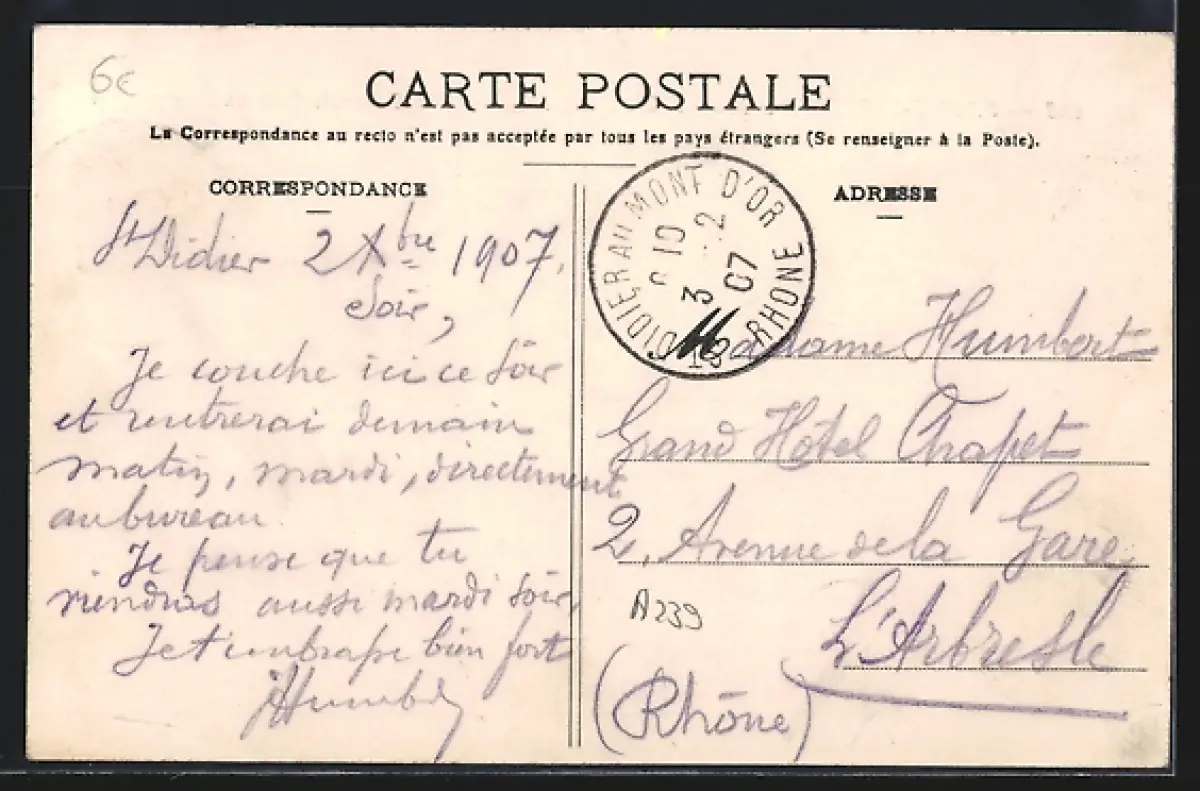 6€
CARTE POSTALE
La Correspondance au recto n'est pas acceptée par tous les pays étrangers (Se renseigner à la Poste).
CORRESPONDANCE
St Didier 2 Xbre 1907,
Soir,
Je couche ici ce soir
et rentrerai demain
matin, mardi, directement
au bureau
Je pense que tu
viendras aussi mardi soir,
Je t'embrasse bien fort
Humbert
DIDIER AU MONT D'OR
RHONE
10
3 2
07
ADRESSE
Madame Humbert
Grand Hôtel Chapet
2, Avenue de la Gare
L'Arbresle
(Rhône)
A239